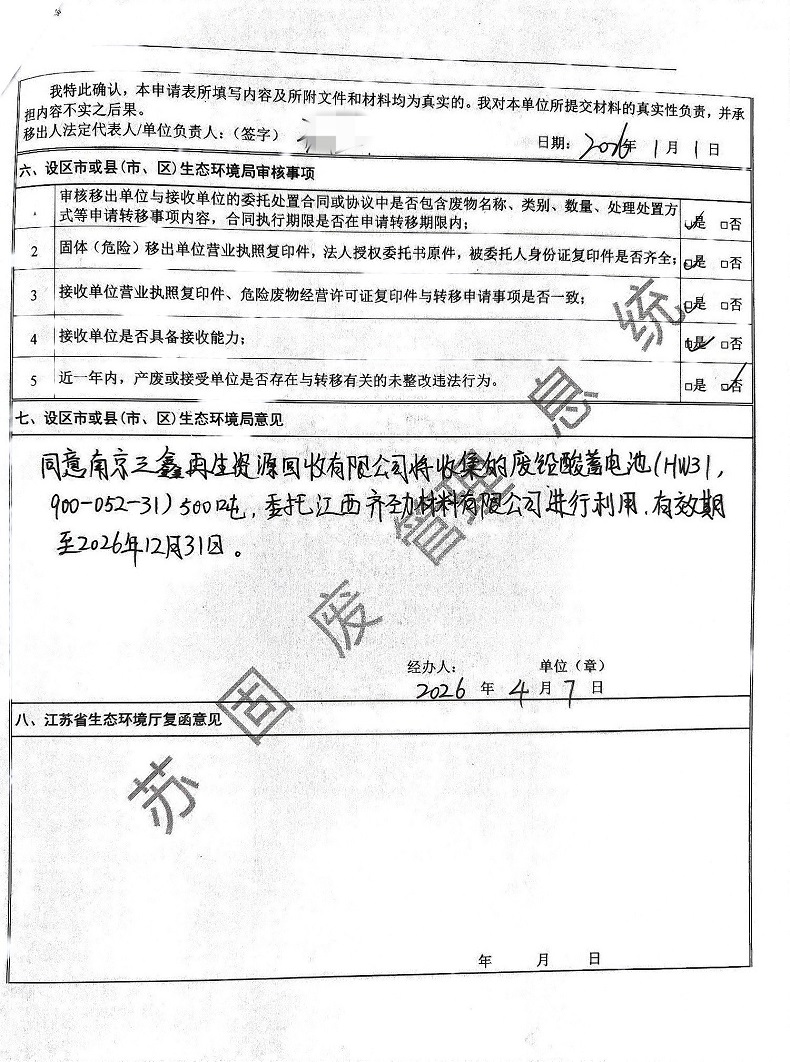 我特此确认，本申请表所填写内容及所附文件和材料均为真实的。我对本单位所提交材料的真实性负责，并承
担内容不实之后果。
移出人法定代表人/单位负责人：（签字）
日期：2026年1月1日
六、设区市或县（市、区）生态环境局审核事项
审核移出单位与接收单位的委托处置合同或协议中是否包含废物名称、类别、数量、处理处置方
式等申请转移事项内容，合同执行期限是否在申请转移期限内；
□是 □否
2 固体（危险）移出单位营业执照复印件，法人授权委托书原件，被委托人身份证复印件是否齐全； □是 □否
3 接收单位营业执照复印件、危险废物经营许可证复印件与转移申请事项是否一致； □是 □否
4 接收单位是否具备接收能力； □是 □否
5 近一年内，产废或接受单位是否存在与转移有关的未整改违法行为。 □是 □否
七、设区市或县（市、区）生态环境局意见
同意南京三鑫再生资源回收有限公司将收集的废铅酸蓄电池（HW31，
900-052-31）500吨，委托江西齐劲材料有限公司进行利用，有效期
至2026年12月31日。
经办人： 单位（章）
2026年4月7日
八、江苏省生态环境厅复函意见
年 月 日
苏固废管理信息系统